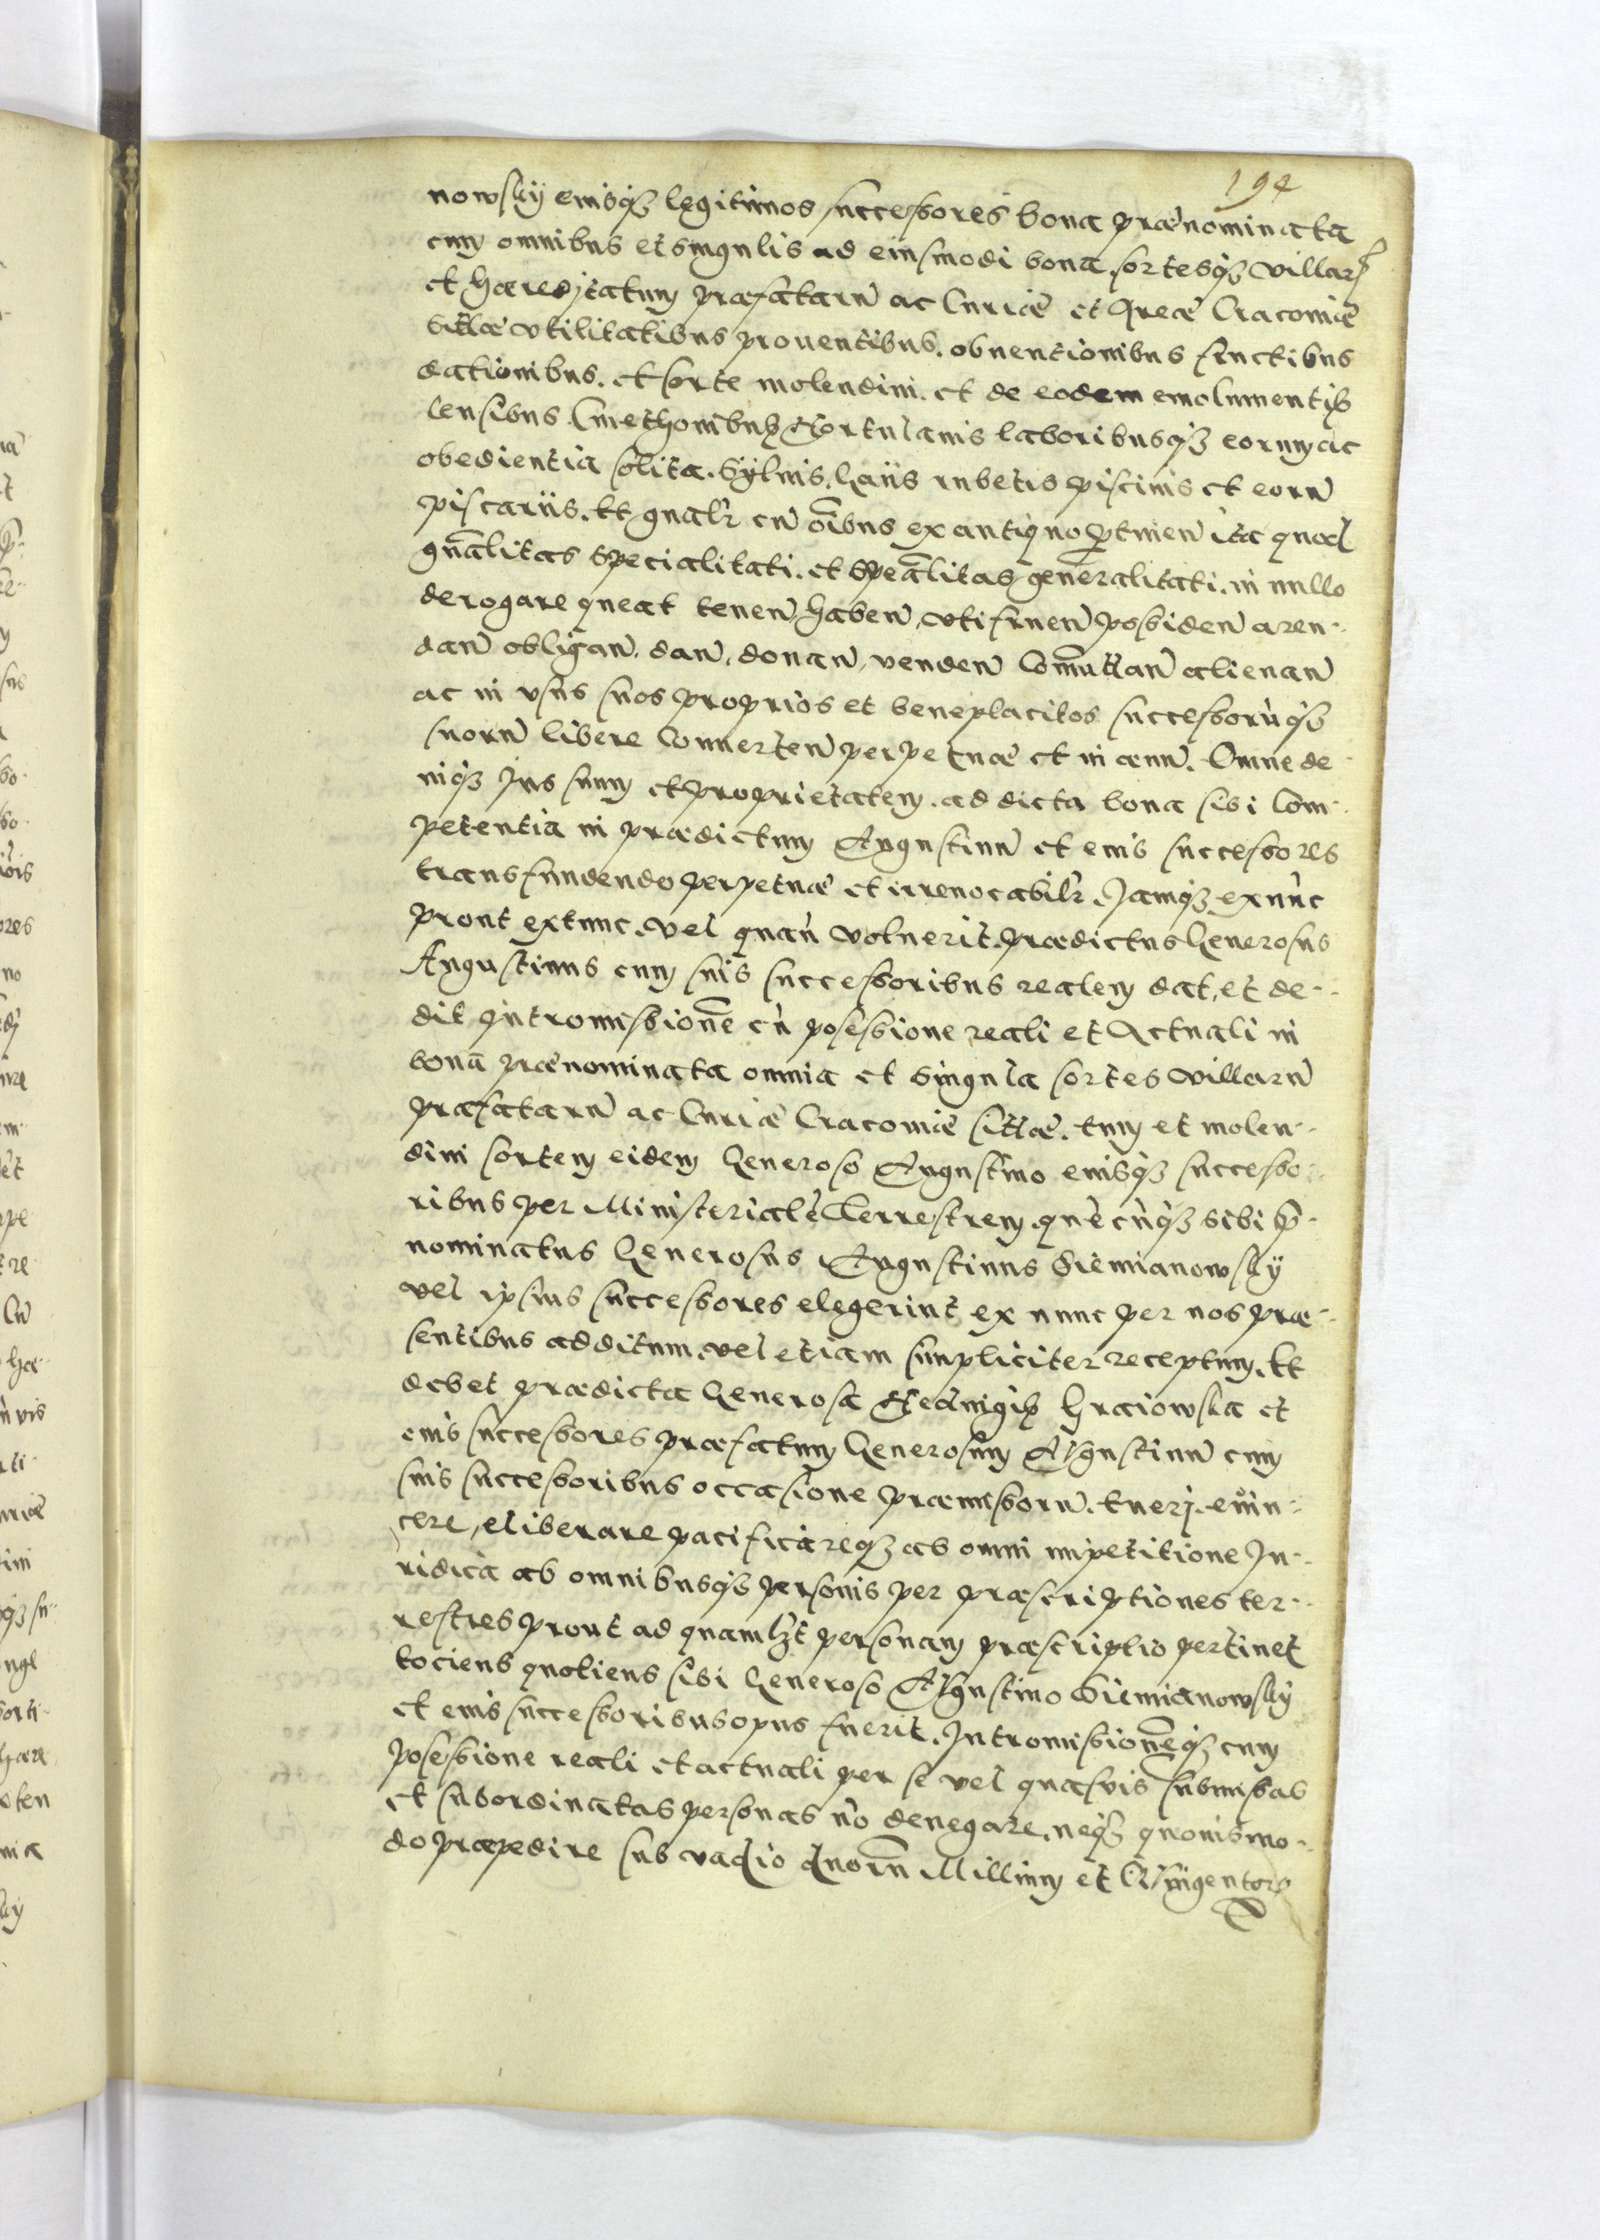 194
nowskÿ eiusq3 legitimos successores bona prænominata
cum omnibus et singulis ad eiusmodi bona, sortesq3 villar
et hæreditatum præfatarũ ac Curiæ et Areæ Cracouiæ
sittæ vtilitatibus prouentibus, obuentionibus fructibus
dationibus, et sorte molendini, et de eodem emolumentis
Censibus Cmethonibus Hortulanis laboribusq3 eorum ac
obedientia solita, Sÿluis, Gaiis rubetis piscinis et eorũ
piscariis, Et gnalr cũ oĩbus ex antiquo ptinen ita quod
gnãlitas specialitati, et speãlitas generalitati, in nullo
derogare queat tenen haben, vtifruen possiden aren-
dan obligan, dan, donan, venden Com̃uttan alienan
ac in vsus suos proprios et beneplacitos successorũq3
suorũ libere Conuerten perpetuæ et in æuũ. Omne de
niq3 Jus suum et proprietatem ad dicta bona sibi Com-
petentia in prædictum Augustinũ et eius successores
transfundendo perpetuæ et irreuocabilr. Jamq3 ex nũc
prout extunc, vel quãũ voluerit, prædictus Generosus
Augustinus cum suis successoribus realem dat, et de-
dit intromissionẽ cũ posessione reali et Actuali in
bona prænominata omnia et singula sortes villarũ
præfatarũ ac Curiæ Cracouiæ sittæ, tum et molen-
dini sortem eidem Generoso Augustino eiusq3 successo-
ribus per Ministerialẽ Terrestrem, quẽcũq3 sibi p̃-
nominatus Generosus Augustinus Siemianowskÿ
vel ipsius successores elegerint ex nunc per nos præ-
sentibus additum, vel etiam simpliciter receptum. Et
debet prædicta Generosa Heduigis Graiowska et
eius successores præfatum Generosum Augustinũ cum
suis successoribus occasione præmissorũ, tueri, euin-
cere, eliberare pacificareq3 ab omni impetitione Ju-
ridica ab omnibusq3 personis per præscriptiones ter-
restres prout ad quamlzt personam præscriptio pertinet
tociens quotiens sibi Generoso Augustino Siemianowskÿ
et eius successoribus opus fuerit, Intromissionẽq3 cum
posessione reali et actuali per se vel quasuis submissas
et subordinatas personas nõ denegare, neq3 quouismo-
do præpedire sub vadio duorũ Millium et Quingentor